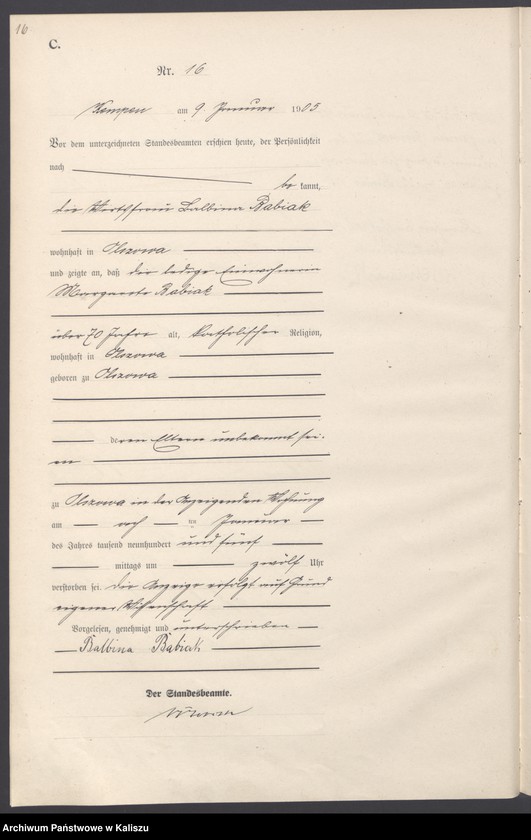 16
C.
Nr. 16
Kempen am 9 Januar 1905
Vor dem unterzeichneten Standesbeamten erschien heute, der Persönlichkeit
nach
be kannt,
die Wirthsfrau Balbina Babiak
wohnhaft in Olszowa
und zeigte an, daß die ledige Einwohnerin
Margarete Babiak
über 70 Jahre alt, katholischer Religion,
wohnhaft in Olszowa
geboren zu Olszowa
deren Eltern unbekannt sei-
en
zu Olszowa in der Anzeigenden Wohnung
am ten Januar
des Jahres tausend neunhundert und fünf
mittags um zwölf Uhr
verstorben sei. Die Anzeige erfolgt auf Grund
eigener Wissenschaft
Vorgelesen, genehmigt und unterschrieben
Balbina Babiak
Der Standesbeamte.
Archiwum Państwowe w Kaliszu